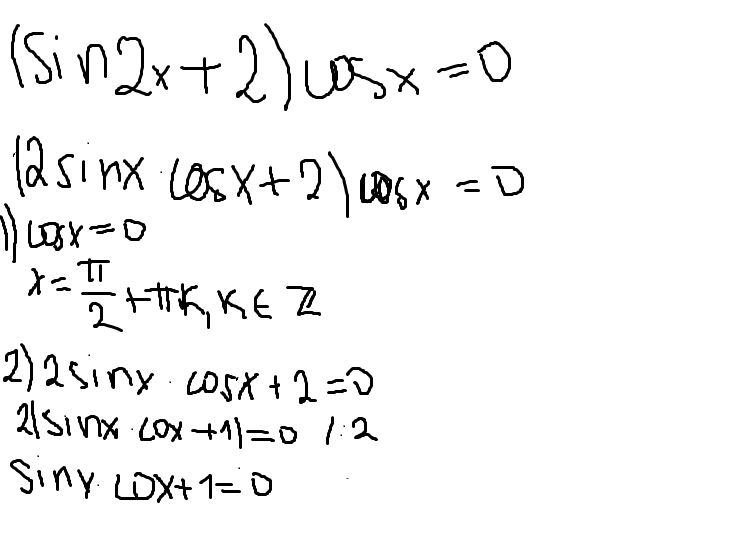 (sin2x+2)cosx=0
(2sinx·cosx+2)cosx=0
1) cosx=0
x=π/2+πk, k∈ℤ
2) 2sinx·cosx+2=0
2(sinx·cox+1)=0 /:2
sinx·cox+1=0